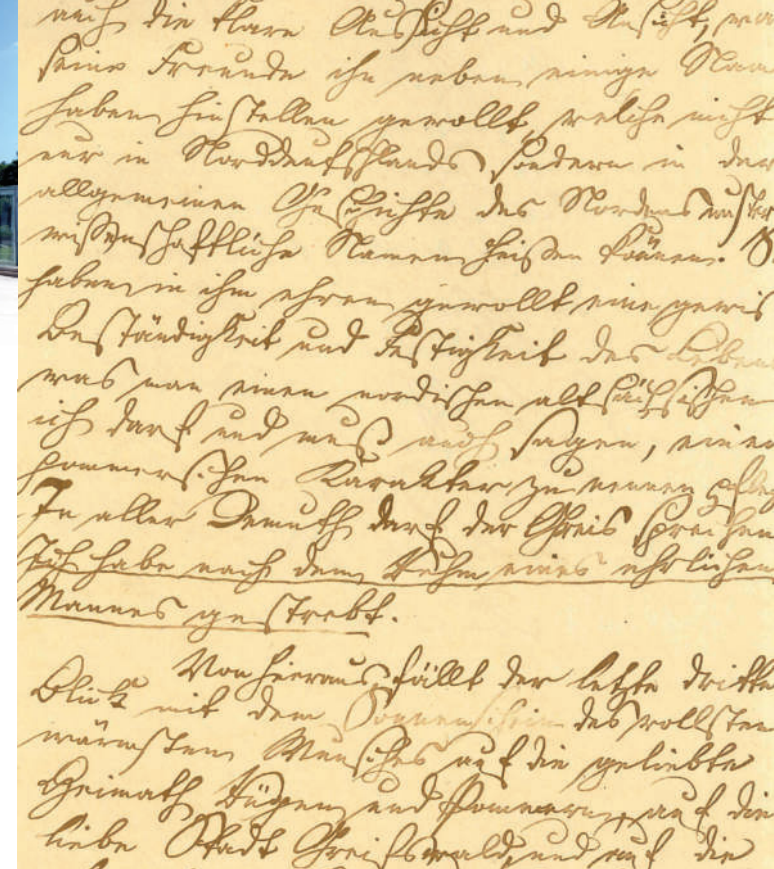 auch die klare Aussicht und Ansicht, wa
seine Freunde ihn neben einige Nam
haben hinstellen gewollt, welche nicht
nur in Norddeutschlands sondern in der
allgemeinen Geschichte des Nordens
wissenschaftliche Namen heißen können. S
haben in ihm ehren gewollt eine gewis
Beständigkeit und Festigkeit des Leben
was man einen nordischen altsächsischen
ich darf und muß auch sagen, einen
pommerschen Karakter zu nennen pfleg
In aller Demuth darf der Greis sprechen
Ich habe nach dem Ruhm eines ehrlichen
Mannes gestrebt.
Von hieraus fällt der letzte dritte
Blick mit dem Sonnenschein des vollsten
wärmsten Wunsches auf die geliebte
Heimath Rügen und Pommern, auf die
liebe Stadt Greifswald und auf die